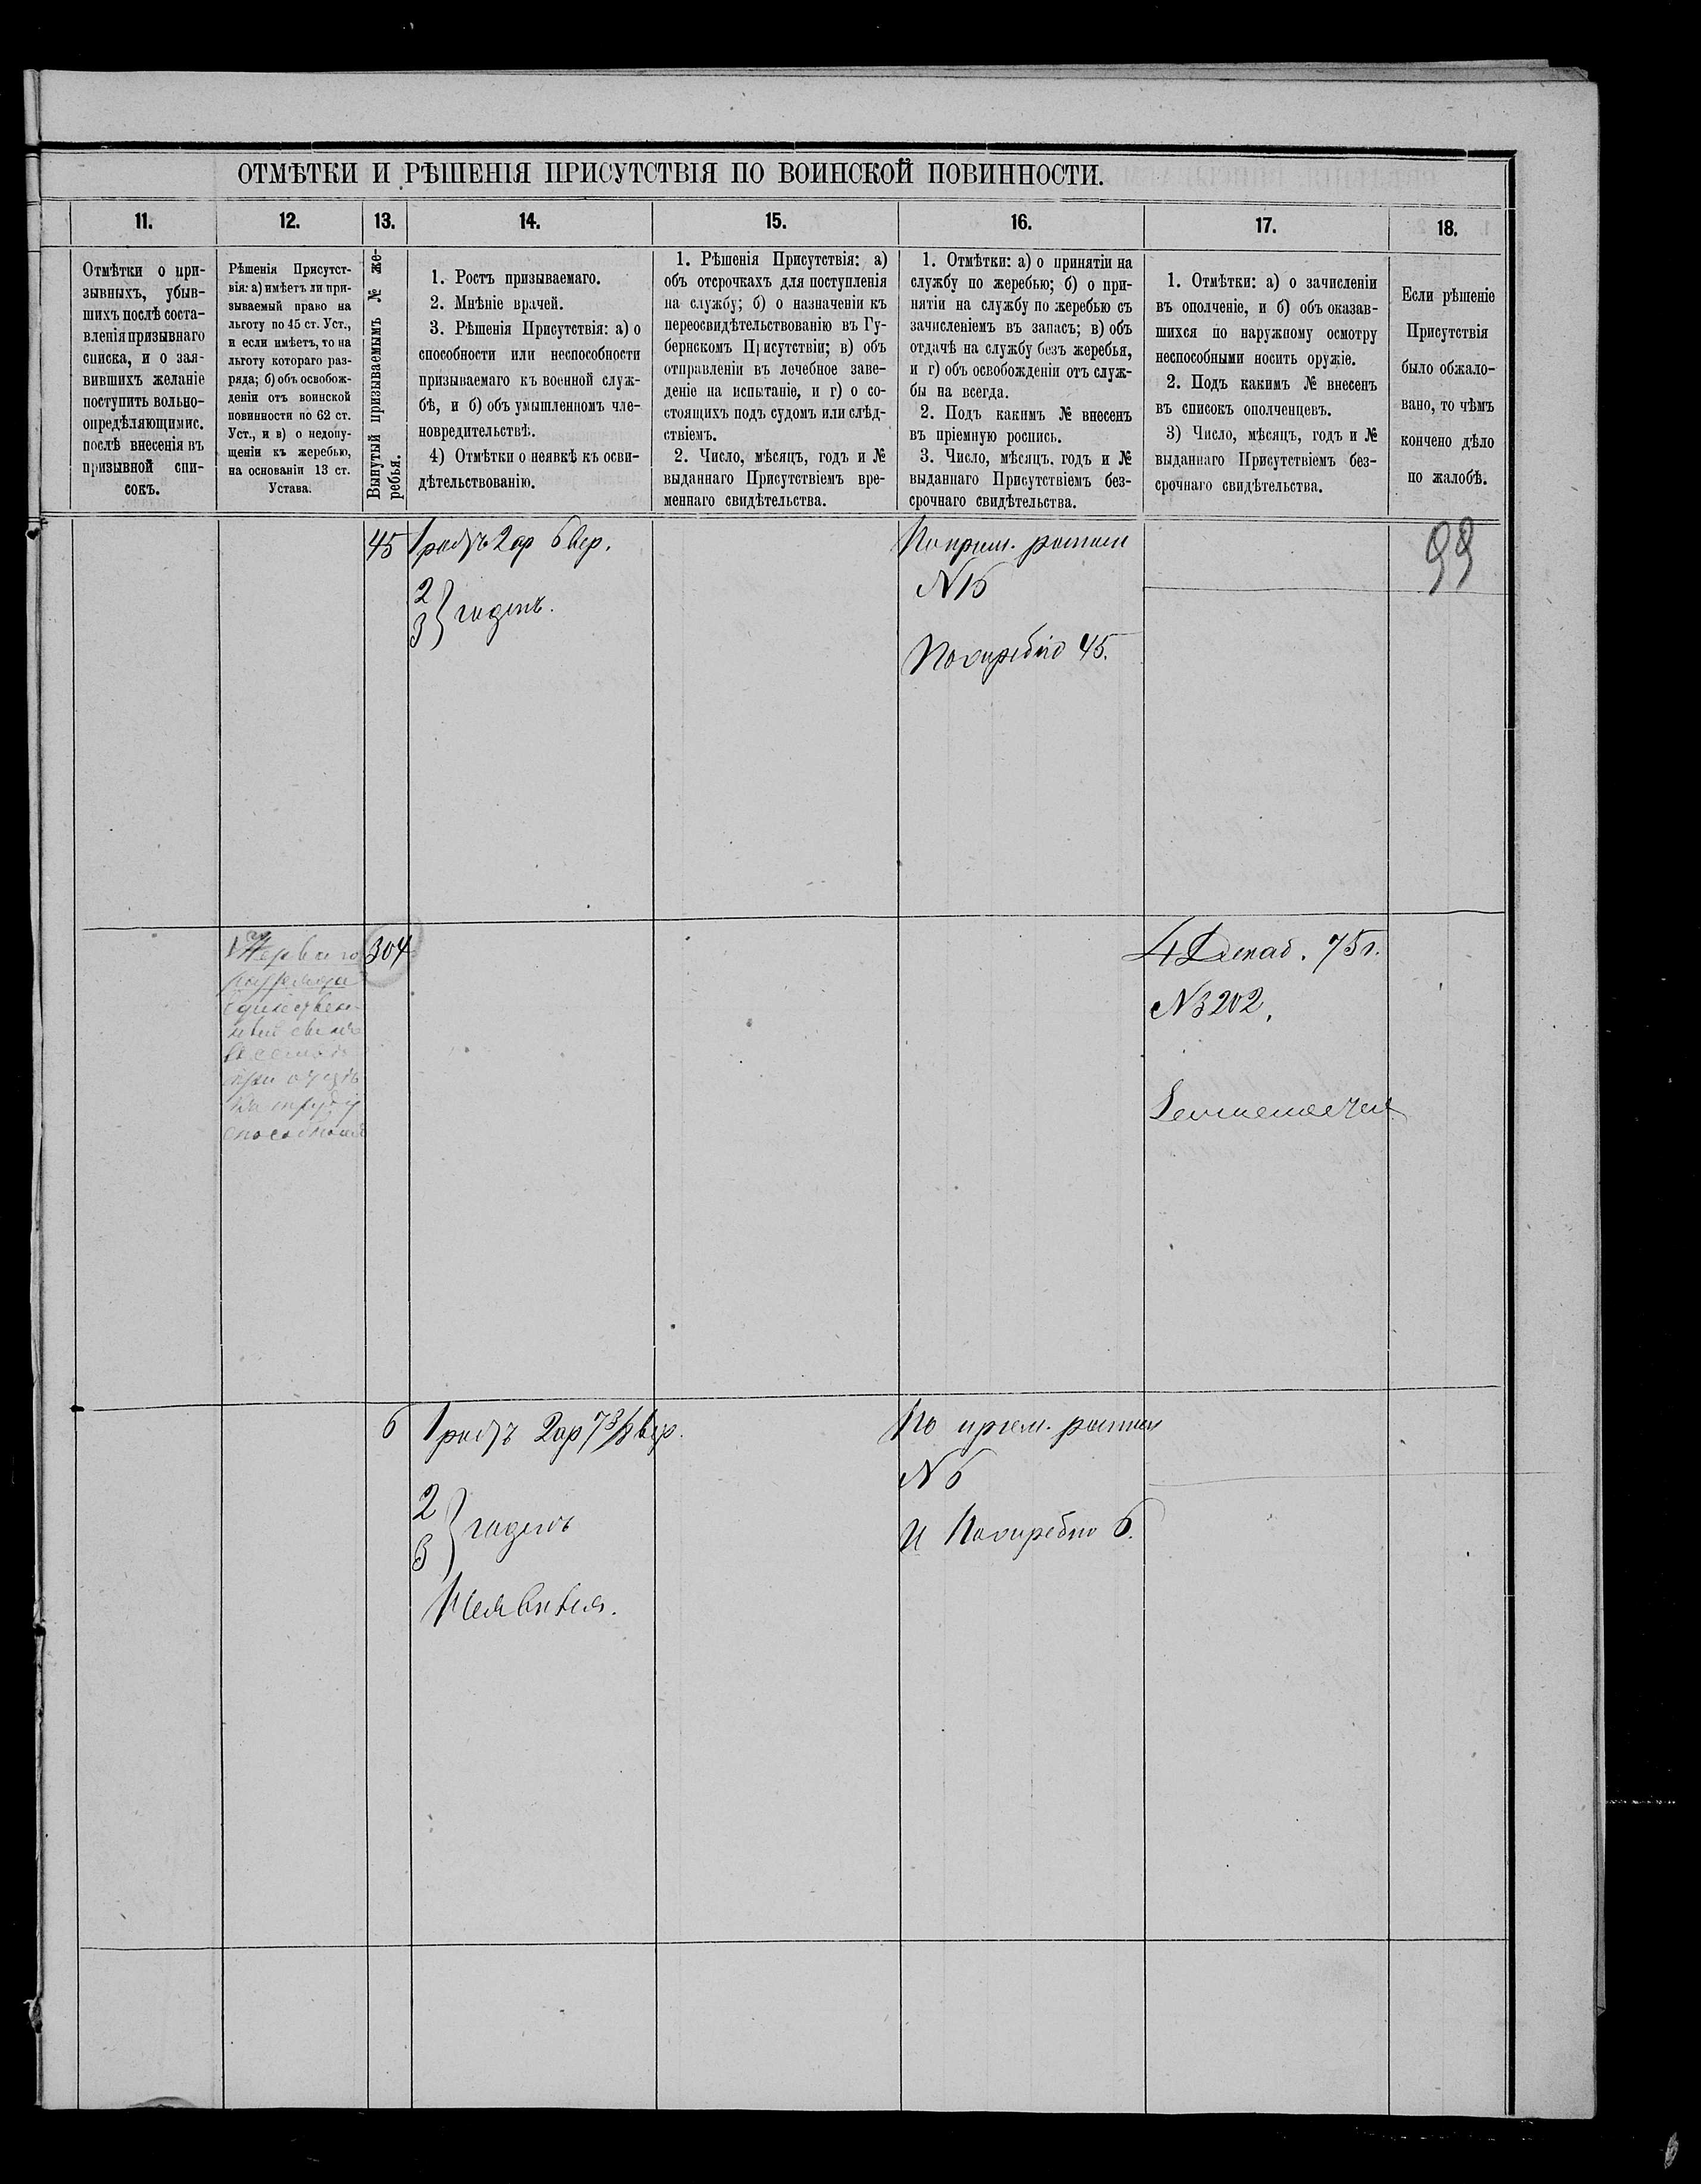 ОТМѢТКИ И РѢШЕНІЯ ПРИСУТСТВІЯ ПО ВОИНСКОЙ ПОВИННОСТИ.
11.
12.
13.
14.
15.
16.
17.
18.
Отмѣтки о при-
зывныхъ, убыв-
шихъ послѣ соста-
вленія призывнаго
списка, и о зая-
вившихъ желаніе
поступить вольно-
опредѣляющимис.
послѣ внесенія въ
призывной спи-
сокъ.
Рѣшенія Присутст-
вія: а) имѣетъ ли при-
зываемый право на
льготу по 45 ст. Уст.,
и если имѣетъ, то на
льготу котораго раз-
ряда; б) объ освобож-
деніи отъ воинской
повинности по 62 ст.
Уст., и в) о недопу-
щеніи къ жеребью,
на основаніи 13 ст.
Устава.
Вынутый призываемымъ № же-
ребья.
1. Ростъ призываемаго.
2. Мнѣніе врачей.
3. Рѣшенія Присутствія: а) о
способности или неспособности
призываемаго къ военной служ-
бѣ, и б) объ умышленномъ чле-
новредительствѣ.
4) Отмѣтки о неявкѣ къ осви-
дѣтельствованію.
1. Рѣшенія Присутствія: а)
объ отсрочкахъ для поступленія
на службу; б) о назначеніи къ
переосвидѣтельствованію въ Гу-
бернскомъ Присутствіи; в) объ
отправленіи въ лечебное заве-
деніе на испытаніе, и г) о со-
стоящихъ подъ судомъ или слѣд-
ствіемъ.
2. Число, мѣсяцъ, годъ и №
выданнаго Присутствіемъ вре-
меннаго свидѣтельства.
1. Отмѣтки: а) о принятіи на
службу по жеребью; б) о при-
нятіи на службу по жеребью съ
зачисленіемъ въ запасъ; в) объ
отдачѣ на службу безъ жеребья,
и г) объ освобожденіи отъ служ-
бы на всегда.
2. Подъ какимъ № внесенъ
въ пріемную роспись.
3. Число, мѣсяцъ, годъ и №
выданнаго Присутствіемъ без-
срочнаго свидѣтельства.
1. Отмѣтки: а) о зачисленіи
въ ополченіе, и б) объ оказав-
шихся по наружному осмотру
неспособными носить оружіе.
2. Подъ какимъ № внесенъ
въ списокъ ополченцевъ.
3) Число, мѣсяцъ, годъ и №
выданнаго Присутствіемъ без-
срочнаго свидѣтельства.
Если рѣшеніе
Присутствія
было обжало-
вано, то чѣмъ
кончено дѣло
по жалобѣ.
45
1 ростъ 2 ар 6 вер.
2
3 } годенъ.
По прием. росписи
N 15
По жеребью 45.
99
Перваго
разряда
единствен-
ный сынъ
въ семьѣ
при отцѣ
къ труду
способномъ
304
4 Декаб. 75 г.
N 3202.
6
1 ростъ 2 ар 7 3/8 вер.
2
3 } годенъ
По прием. росписи
N 6
и По жеребью 6.